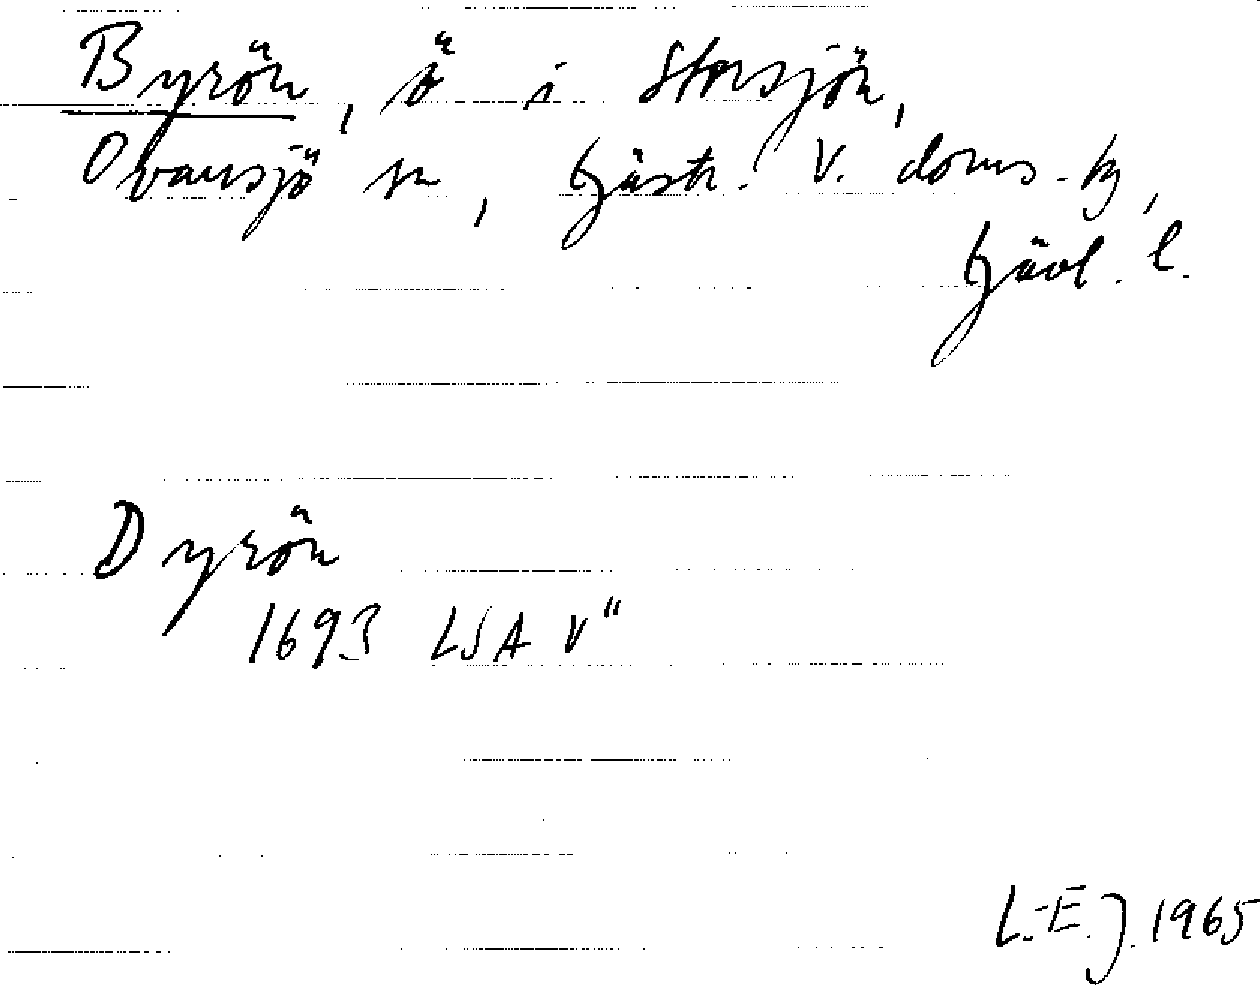 Byrön, ö i Storsjön,
Ovansjö sn, Gästr. V. doms-hg,
Gävl. l.
Dyrön
1693 LSA V"
L.-E. J. 1965